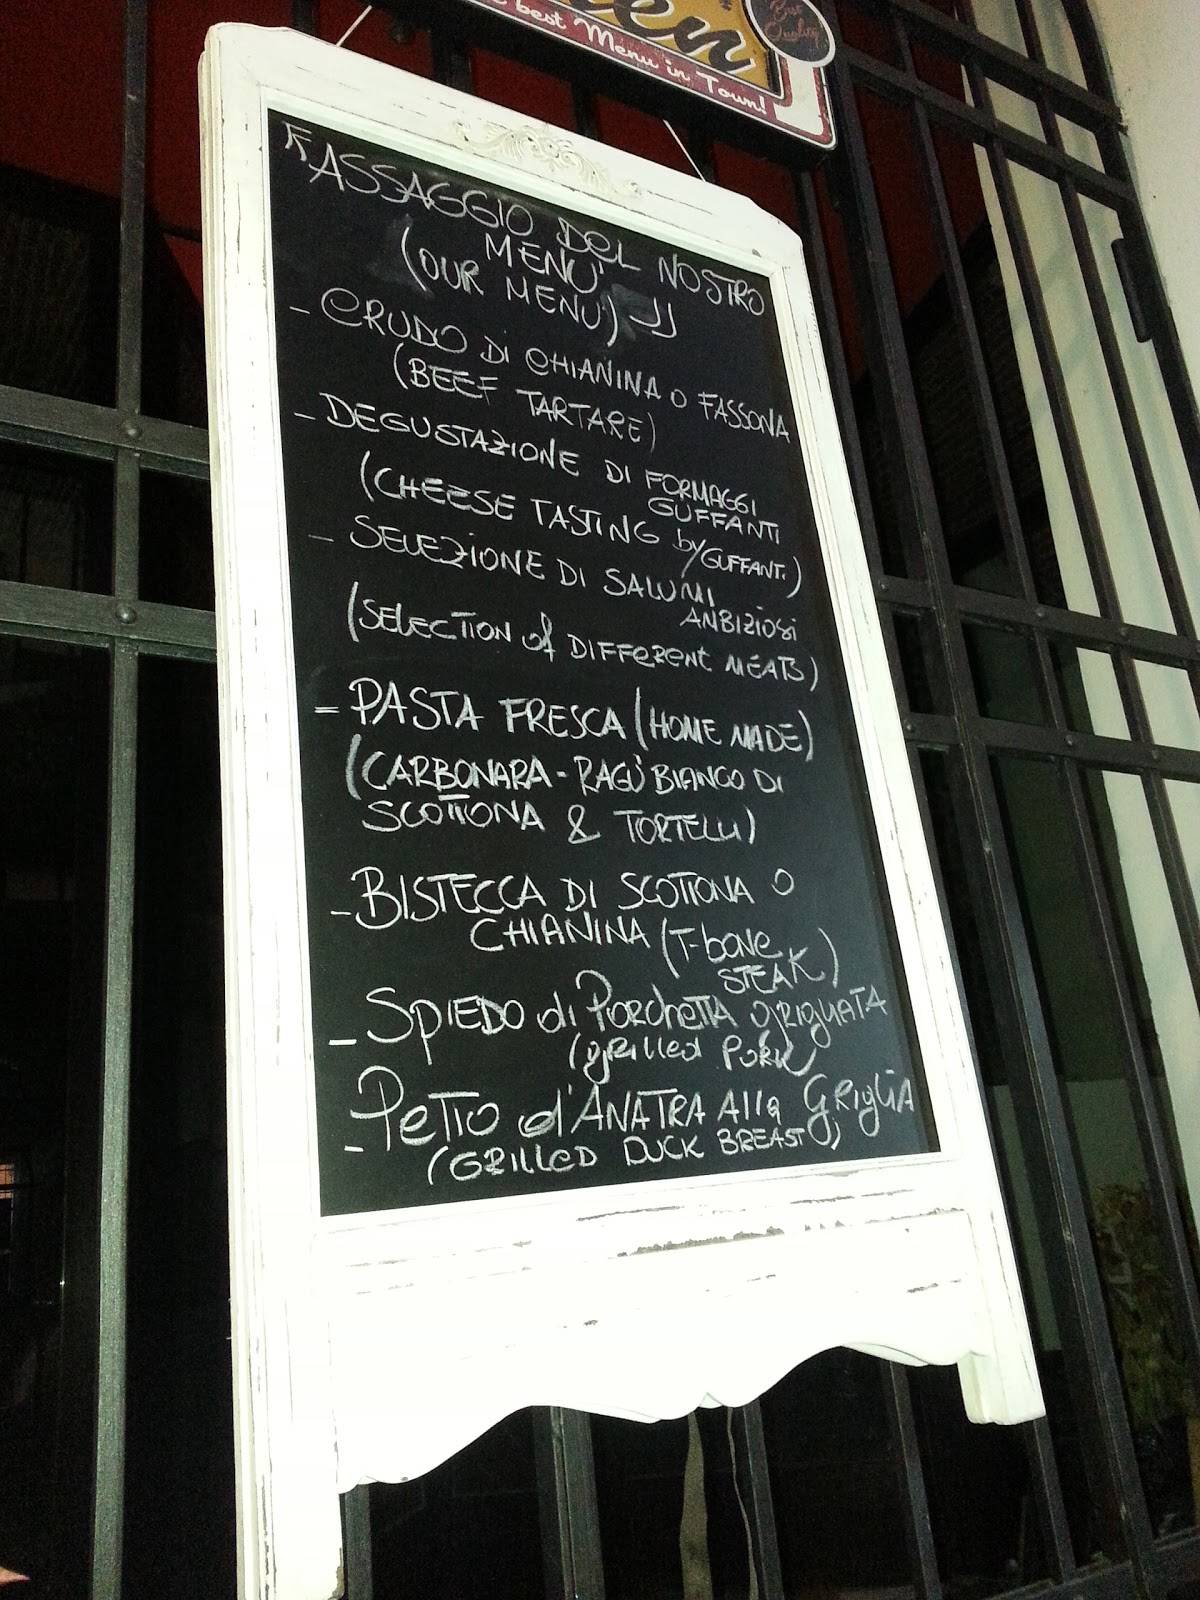 best Menu in Town!
Best
Quality
ASSAGGIO DEL NOSTRO
MENU'
(OUR MENU)
- CRUDO DI CHIANINA O FASSONA
(BEEF TARTARE)
- DEGUSTAZIONE DI FORMAGGI
GUFFANTI
(CHEESE TASTING by GUFFANTI)
- SELEZIONE DI SALUMI
ANBIZIOSI
(SELECTION of DIFFERENT MEATS)
= PASTA FRESCA (HOME MADE)
(CARBONARA - RAGU' BIANCO DI
SCOTTONA & TORTELLI)
- BISTECCA DI SCOTTONA O
CHIANINA (T-bone
STEAK)
- SPIEDO di PorchETTA grigliATA
(grilled Pork
- PETTO d'ANATRA Alla GRIGLIA
(GRILLED DUCK BREAST)